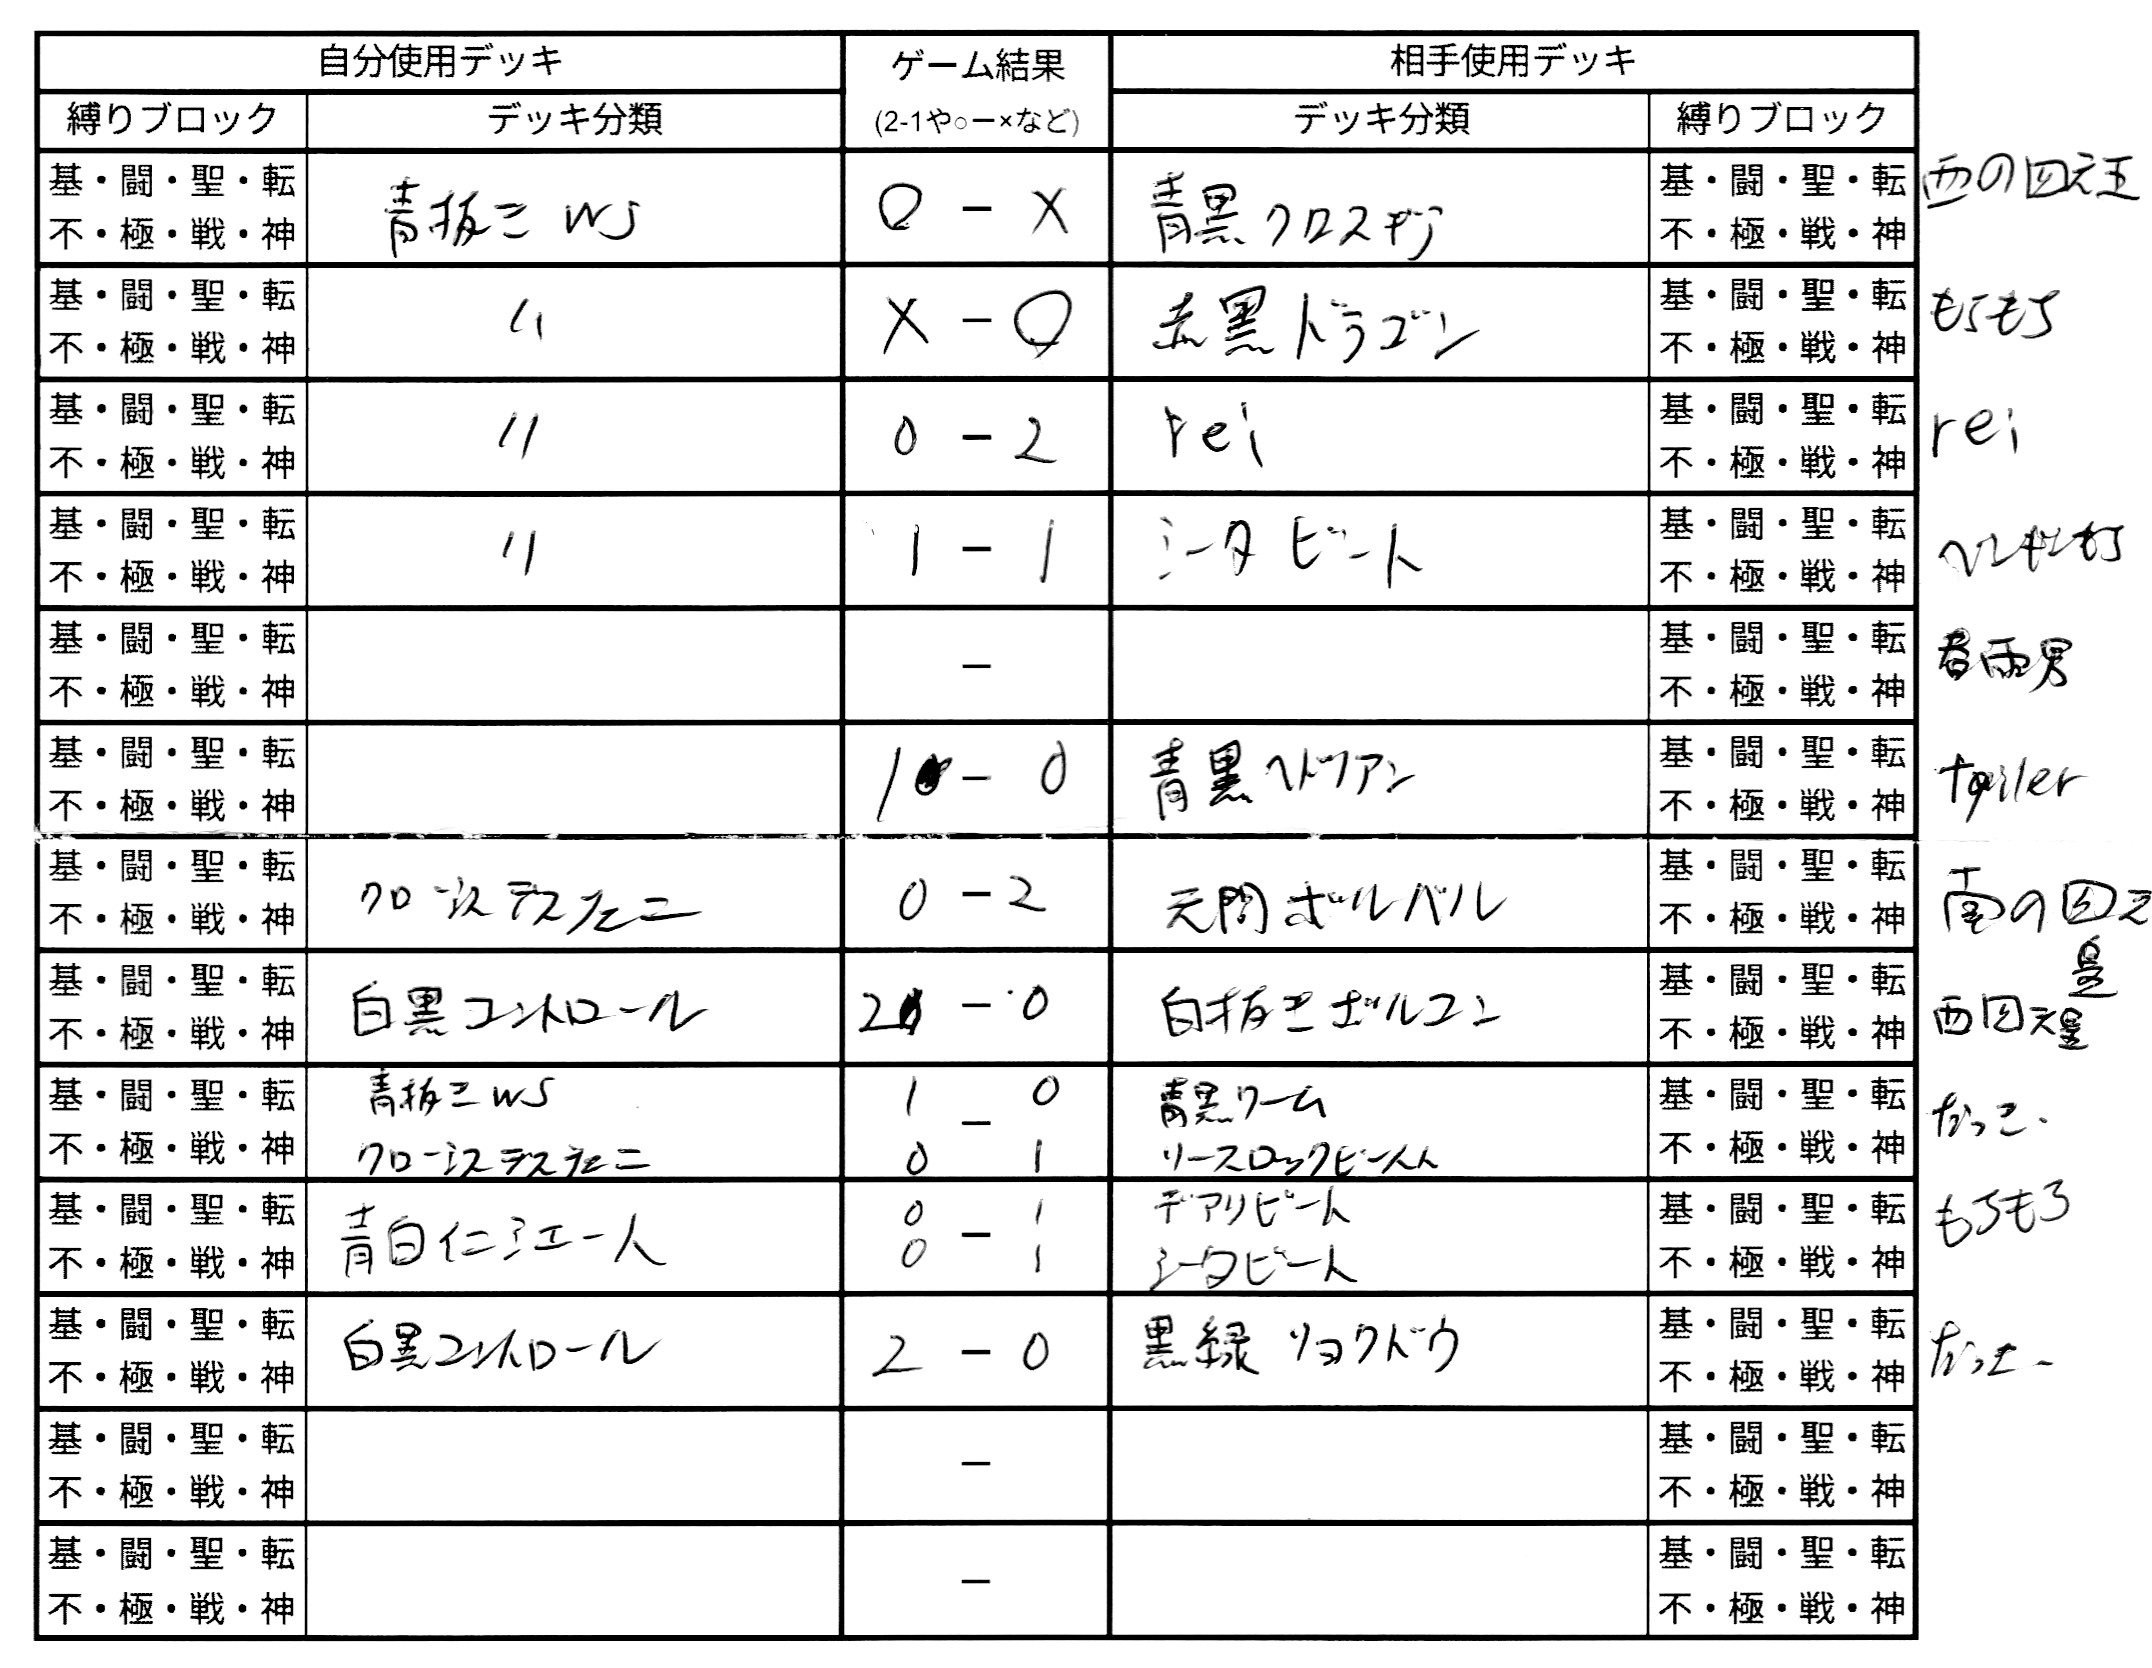 自分使用デッキ
ゲーム結果
相手使用デッキ
縛りブロック
デッキ分類
(2-1や○ー×など)
デッキ分類
縛りブロック
基・闘・聖・転
不・極・戦・神
青抜き WS
○ - ×
青黒クロスギア
基・闘・聖・転
不・極・戦・神
西の四天王
基・闘・聖・転
不・極・戦・神
〃
× - ○
赤黒ドラゴン
基・闘・聖・転
不・極・戦・神
もちもち
基・闘・聖・転
不・極・戦・神
〃
0 - 2
rei
基・闘・聖・転
不・極・戦・神
rei
基・闘・聖・転
不・極・戦・神
〃
1 - 1
シータビート
基・闘・聖・転
不・極・戦・神
基・闘・聖・転
不・極・戦・神
-
基・闘・聖・転
不・極・戦・神
春雨男
基・闘・聖・転
不・極・戦・神
1 - 0
青黒ヘドリアン
基・闘・聖・転
不・極・戦・神
基・闘・聖・転
不・極・戦・神
クローシスデスフェニ
0 - 2
天門ボルバル
基・闘・聖・転
不・極・戦・神
南の四天
基・闘・聖・転
不・極・戦・神
白黒コントロール
2 - 0
白抜きボルコン
基・闘・聖・転
不・極・戦・神
西四天星
基・闘・聖・転
不・極・戦・神
青抜き WS
クローシスデスフェニ
1 - 0
0 1
青黒ワーム
リースロックビート
基・闘・聖・転
不・極・戦・神
なっこ
基・闘・聖・転
不・極・戦・神
青白イニシエート
0 - 1
0 1
デアリビート
シータビート
基・闘・聖・転
不・極・戦・神
もちもち
基・闘・聖・転
不・極・戦・神
白黒コントロール
2 - 0
黒緑リョクドウ
基・闘・聖・転
不・極・戦・神
基・闘・聖・転
不・極・戦・神
-
基・闘・聖・転
不・極・戦・神
基・闘・聖・転
不・極・戦・神
-
基・闘・聖・転
不・極・戦・神